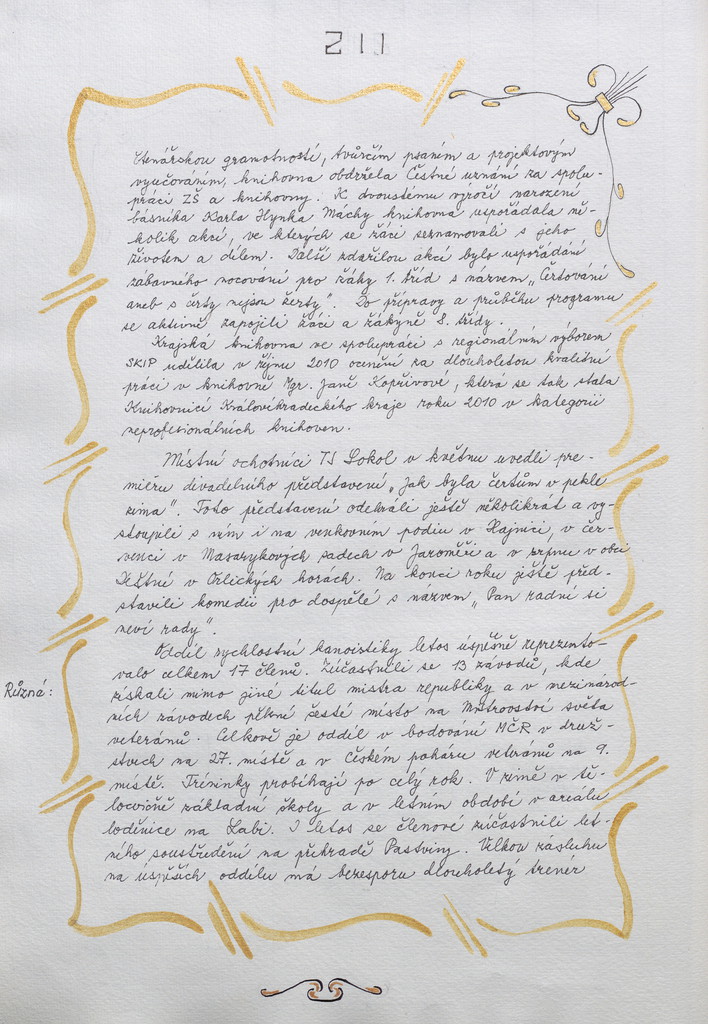 211
čtenářskou gramotností, tvůrčím psaním a projektovým
vyučováním, knihovna obdržela Čestné uznání za spolu-
práci ZŠ a knihovny. K dvoustému výročí narození
básníka Karla Hynka Máchy knihovna uspořádala ně-
kolik akcí, ve kterých se žáci seznamovali s jeho
životem a dílem. Další zdařilou akcí bylo uspořádání
zábavného nocování pro žáky 1. tříd s názvem „Čertování
aneb s čerty nejsou žerty". Do přípravy a průběhu programu
se aktivně zapojili žáci a žákyně 8. třídy.
Krajská knihovna ve spolupráci s regionálním výborem
SKIP udělila v říjnu 2010 ocenění za dlouholetou kvalitní
práci v knihovně Mgr. Janě Kopřivové, která se tak stala
Knihovnicí Královéhradeckého kraje roku 2010 v kategorii
neprofesionálních knihoven.
Místní ochotníci TJ Sokol v květnu uvedli pre-
miéru divadelního představení „Jak byla čertům v pekle
zima". Toto představení odehráli ještě několikrát a vy-
stoupili s ním i na venkovním podiu v Hajnici, v čer-
venci v Masarykových sadech v Jaroměři a v srpnu v obci
Deštné v Orlických horách. Na konci roku ještě před-
stavili komedii pro dospělé s názvem „Pan radní si
neví rady".
Oddíl rychlostní kanoistiky letos úspěšně reprezento-
valo celkem 17 členů. Zúčastnili se 13 závodů, kde
Různá:
získali mimo jiné titul mistra republiky a v mezinárod-
ních závodech pěkné šesté místo na Mistrovství světa
veteránů. Celkově je oddíl v bodování MČR v druž-
stvech na 27. místě a v Českém poháru veteránů na 9.
místě. Tréninky probíhají po celý rok. V zimě v tě-
locvičně základní školy a v letním období v areálu
loděnice na Labi. I letos se členové zúčastnili let-
ního soustředění na přehradě Pastviny. Velkou zásluhu
na úspěších oddílu má bezesporu dlouholetý trenér